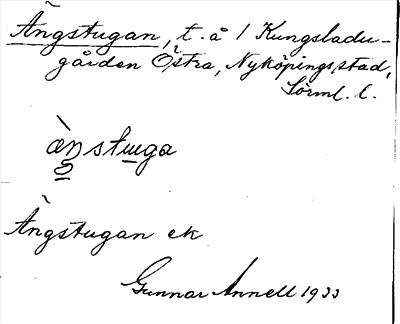 Ängstugan, t. å / Kungsladu-
gården Östra, Nyköpings stad,
Sörml. l.
ä̀nstuga
Ängstugan ek
Gunnar Annell 1933